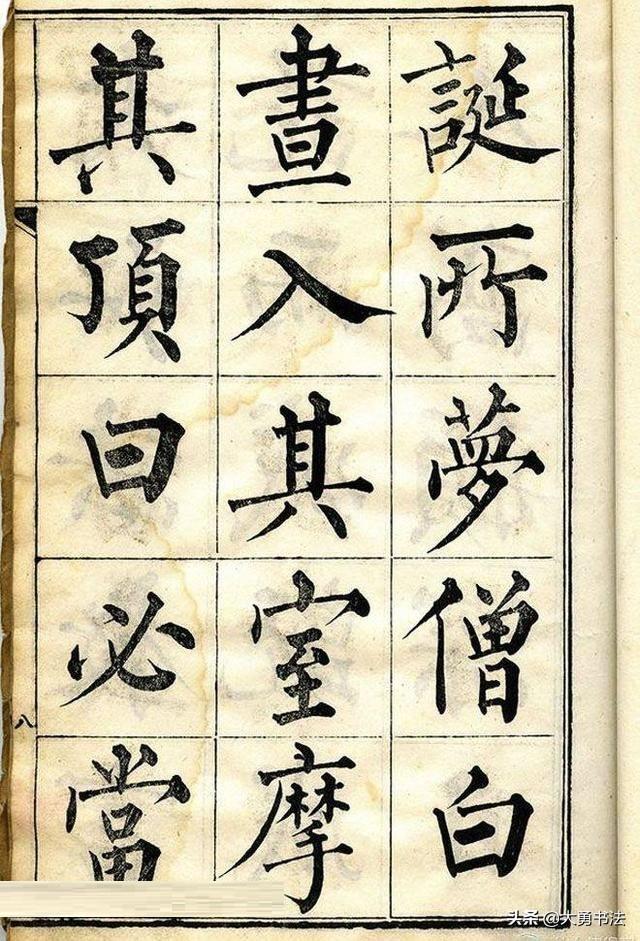 誕所夢僧白
晝入其室摩
其頂曰必當
八
头条 @大勇书法